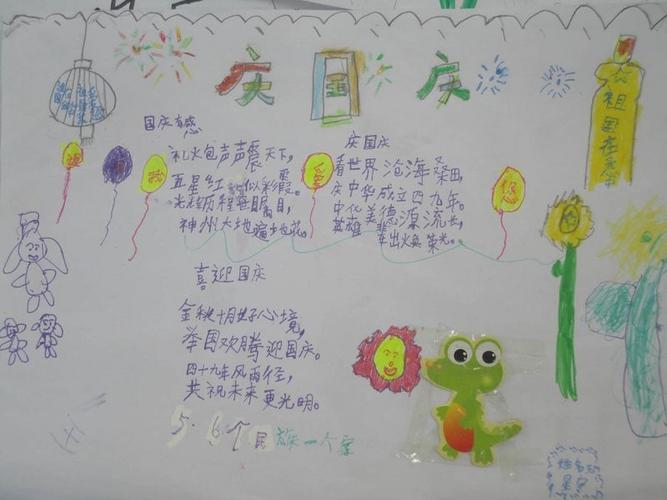 庆国庆
国庆有感
礼火包声声震天下,
五星红旗似彩霞。
光辉历程在眼目,
神州大地遍地花。
庆国庆
看世界沧海桑田,
庆中华成立四九年。
中华美德源流长,
英雄辈出火焕荣光。
喜迎国庆
金秋十月好心境,
举国欢腾迎国庆。
四十九年风雨径,
共祝未来更光明。
5.6个民族一个家
祖国在